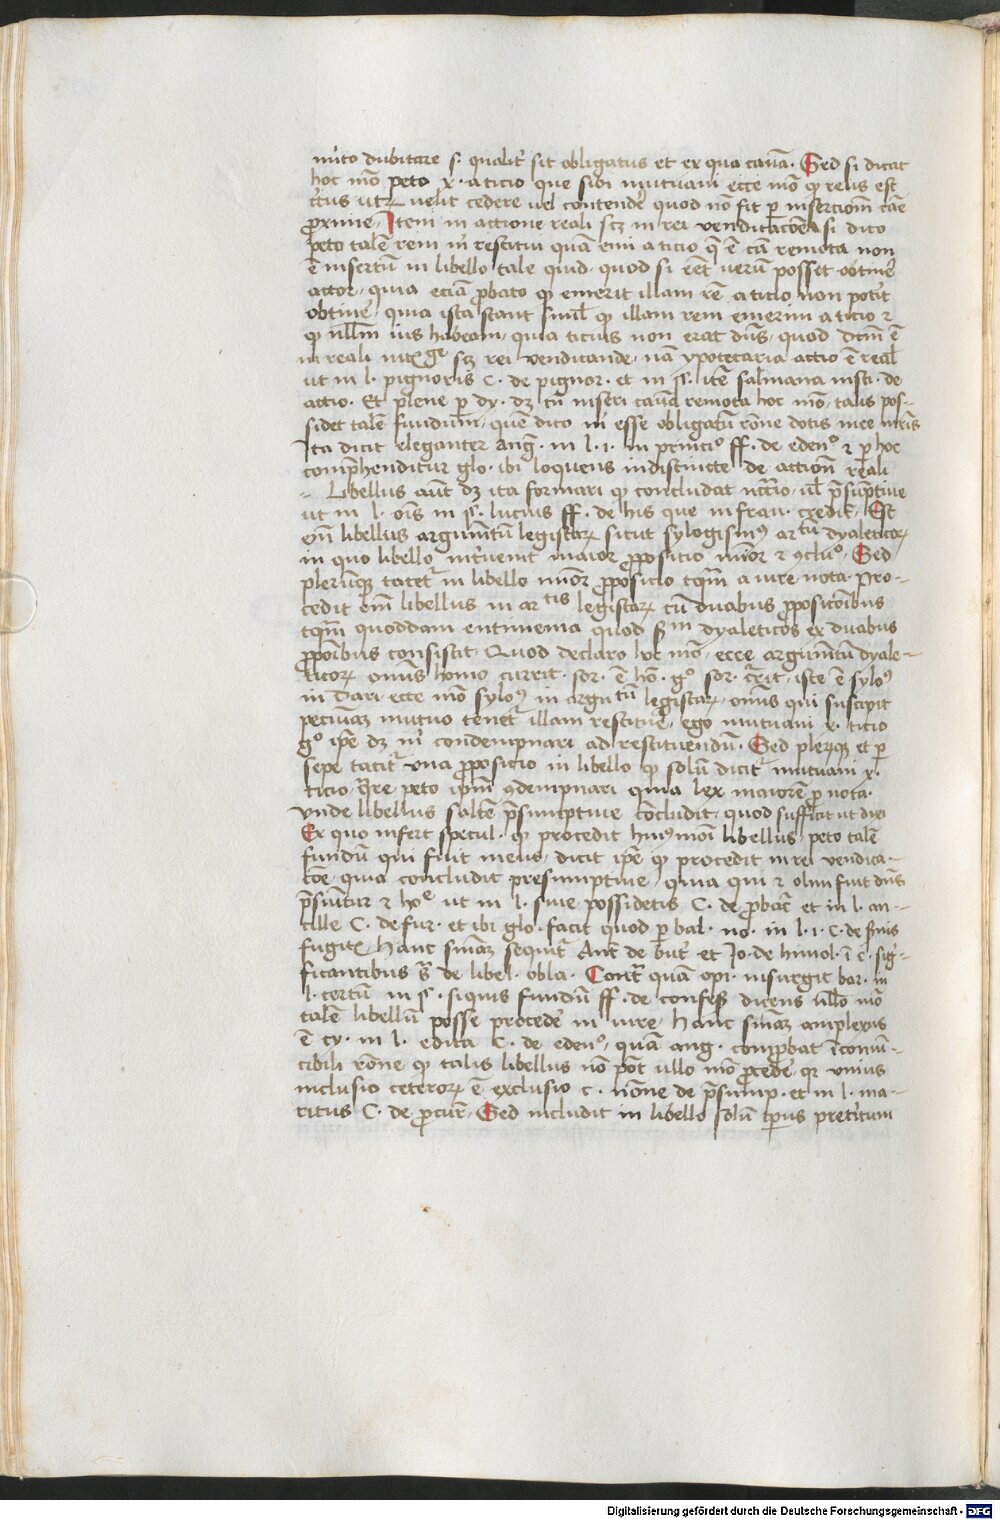 mito dubitare s. qualit̕ sit obligatus et ex qua causa. Sed si dicat
hoc mō peto x. a ticio que sibi mutuavi ecce mō qꝫ reus est
c̕tus utꝝ velit cedere vel contende̕ quod nō fit ꝑ insercionē cāe
ꝓxime. Item in actione reali scꝫ in rei vendicacōe si dico
peto talē rem m̕ restitui quā emi a ticio q̄ ē cā remota non
ē insertū in libello tale quid. quod si eēt verū posset obtine̕
actor. quia eciā ꝓbato qꝫ emerit illam rē a ticio non pot̕it
obtine̕. quia ista stant simul qꝫ illam rem emerim a ticio ⁊
qꝫ nllm̄ ius habeam. quia ticius non erat dn̄s. quod dcm̄ ē
in reali scꝫ rei vendicande. nā ypotecaria actio ē real̕
ut in l. pignoris C. de pignor. et in §. itē salviana insti. de
actio. Et plene ꝑ dy. dꝫ tn̄ inseri causa remota hoc mō. talis pos-
sidet talē fundum. quē dico m̕ esse obligatū rōne dotis mee
Ita dicit eleganter ang̅. in l. i. in princi° ff. de eden° ⁊ ꝑ hoc
comp̄henditur glo. ibi loquens indistincte de actionē reali
Libellus aūt dꝫ ita formari qꝫ concludat nc̄c̄rio. ul̕ p̄sūptive
ut in l. ois̄ in §. lucius ff. de his que in frau. credit̕. Est
em̄ libellus argumētū legistaꝝ sicut sylogismꝰ artū dyaleticoꝝ
in quo libello int̕venit maior ꝓpositio minor ⁊ ꝯclu°. Sed
pleruqꝫ tacet̕ in libello minor ꝓpositio tqm̄ a iure nota. Pro-
cedit em̄ libellus in artis legistaꝝ cū duabus ꝓpositōibus
tqm̄ quoddam entimema quod s̄m dyaleticos ex duabus
ꝓpōibus consistit. Quod declaro hoc mō. ecce argumētū dyale-
ticoꝝ omīs homo currit. sor. ē hō. g° sor. c̄rit. iste ē syloꝰ
in Dari. ecce mō syloꝰ in argutū legistaꝝ. omīs qui suscipit
pecuniaꝫ mutuo tenet̕ illam restitue̕. ego mutuavi x. ticio
g° ip̄e dꝫ m̕ condempnari ad restituendū. Sed pleruqꝫ et ꝑ
sepe tacit̕ una ꝓpositio in libello qꝫ solū dicit̕ mutuavi x.
ticio. Q̄re peto ipm̄ ꝯdempnari quia lex maiorē ꝓ nota.
Unde libellus saltē p̄sumptive cōcludit. quod sufficit ut dixi
Ex quo infert specul. qꝫ procedit huiꝰmoi libellus. peto talē
fundū qui fuit meus. dicit ip̄e qꝫ procedit in rei vendica-
cōe. quia concludit presumptive. quia qui ⁊ olim fuit dn̄s
p̄sumitur ⁊ hoe ut in l. sive possidetis C. de ꝓbat̕ et in l. an-
cille C. de fur. et ibi glo. facit quod ꝑ bal. no. in l. i. C. de s̄vis
fugit̕. Hanc sniāꝫ sequit̕ Ant̕ de but̕ et Jo. de himol. ī c. sig̕-
ficantibus de libel. obla. Cont̕ quā opi. insurgit bar. in
l. certū in §. siquis fundū ff. de confess. dicens ullo mō
talē libellū posse procede̕ in iure. Hanc sniāꝫ amplexus
ē cy. in l. edita C. de eden°. quā ang. comꝓbat īcomū-
tibili rōne qꝫ talis libellus nō pōt ullo mō ꝓcede̕. qꝛ unius
inclusio ceteroꝝ ē exclusio c. nōne de p̄sump. et in l. ma-
ritus C. de ꝓcur̕. Sed includit in libello solū tꝑus pret̕itum